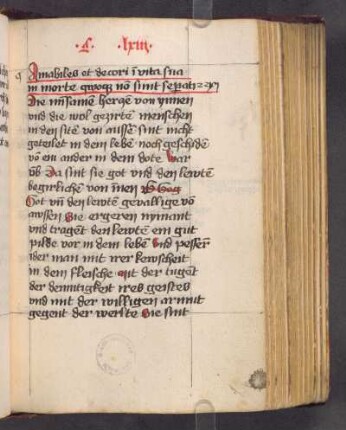 f. lxiii
Amabiles et decori i vita sua
in morte quoqz nō sint sepati
Die mīsame hercze von ynnen
und die wol gezirte menschen
in den siten von aussen sint nicht
geteilet in dem lebē noch geschidē
vō ein ander in dem dote war
vb Da sint sie got und den lewten
begirlichen von īnen
Got vnd den lewtē gevallige vō
awssen Sie ergeren nymant
und tragent den lewtē ein gut
pilde vor in dem lebē und pesser
ider man mit irer kewscheit
in dem fleische mit der tugent
der demutigkeit ires geistes
und mit der willigen armut
gegent der werlte Sie sint